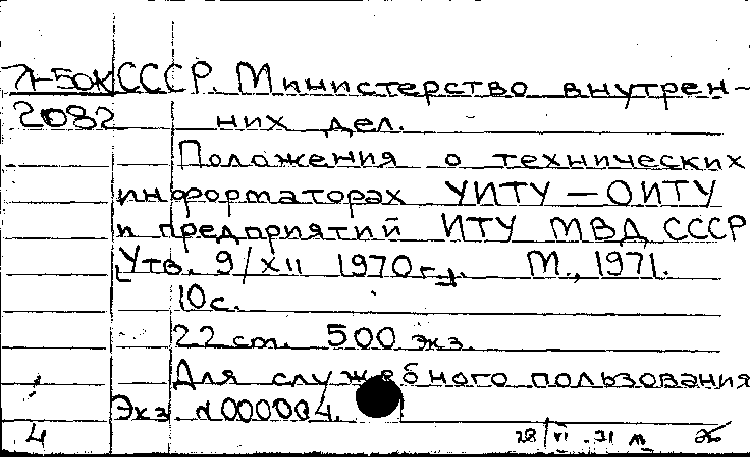 Л-50К СССР. Министерство внутрен-
2082 них дел.
Положения о технических
информаторах УИТУ — ОИТУ
и предприятий ИТУ МВД СССР
[Утв. 9/XII 1970 г.]. М., 1971.
10 с.
22 см. 500 экз.
Для служебного пользования
Экз. №000004.
4 28/VI-71